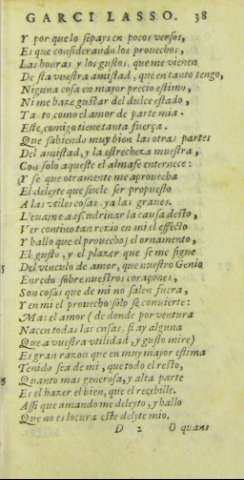 GARCI LASSO. 38
Y por que lo sepays en pocos versos,
Es que considerando los prouechos,
Las honras y los gustos, que me vienen
De sta vuestra amistad, que en tanto tengo,
Niguna cosa en mayor precio estimo,
Ni me haze gustar del dulce estado,
Tato, como el amor de parte mia.
Este, comigo tiene tanta fuerça.
Que sabiendo muy bien las otras partes
Del amistad, y la estrecheza nuestra,
Con solo aqueste el alma se enternece:
Y se que otramente me aprouecha
El deleyte que suele ser propuesto
A las vtiles cosas. ya las graues.
Lleuame a escudrinar la causa desto,
Ver contino tan rezio en mi el effecto
Y hallo que el prouecho, el ornamento,
El gusto, y el plazer que se me sigue
Del vinculo de amor, que nuestro Genio
Enredo sobre nuestros coraçones,
Son cosas que de mi no salen fuera,
Y en mi el prouecho solo se conuierte:
Mas el amor (de donde por ventura
Nacen todas las cosas, si ay alguna
Que a vuestra vtilidad, y gusto mire)
Es gran razon que en muy mayor estima
Tenido sea de mi, que todo el resto,
Quanto mas generosa, y alta parte
Es el hazer el bien, que el recebille.
Assi que amando me deleyto, y hallo
Que no es locura este deleyte mio.
D 2 O quans